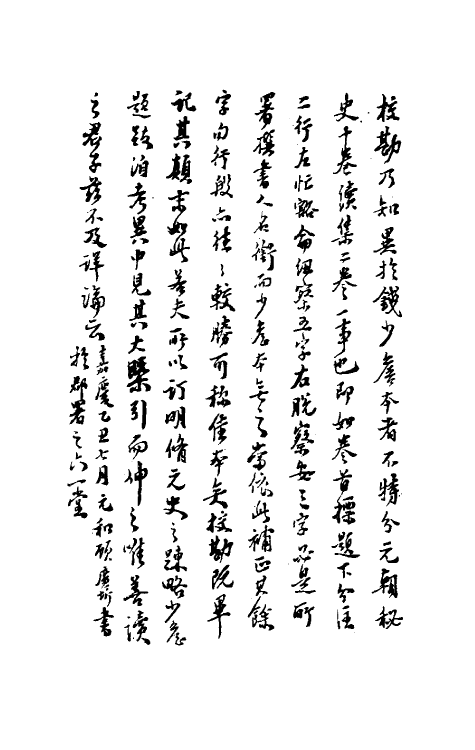 校勘乃知異於錢少詹本者不特分元朝秘
史十卷續集二卷一事也即如卷首標題下分注
二行左忙豁侖紐察五字右脫察安三字必是所
署撰書人名銜而少詹本無之當依此補正其餘
字句行段亦往〻較勝可稱佳本矣校勘既畢
記其顛末如此若夫所以訂明脩元史之疎略少詹
題跋洎考異中見其大槩引而伸之唯善讀
之君子茲不及詳論云嘉慶乙丑七月元和顧廣圻書
於郡署之六一堂